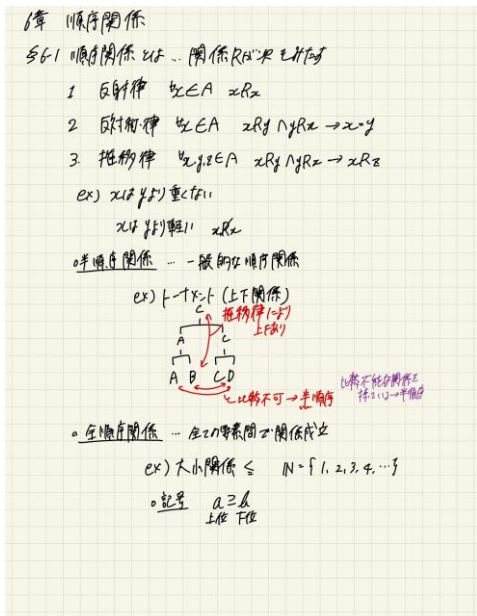 6章 順序関係
§6-1 順序関係とは… 関係Rが次をみたす
1 反射律 ∀x∈A xRx
2 反対称律 ∀x∈A xRy∧yRx→x=y
3. 推移律 ∀x,y,z∈A xRy∧yRz→xRz
ex) xはyより重くない
xはyより軽い xRx
○半順序関係 … 一般的な順序関係
ex) トーナメント (上下関係)
C 推移律により
上下あり
A C
A B C D
比較不可→半順序
比較不能な関係を
持っている→半順序
○全順序関係 … 全ての要素間で関係成立
ex) 大小関係 ≦ ℕ={1, 2, 3, 4, …}
○記号 a≧b
上位 下位